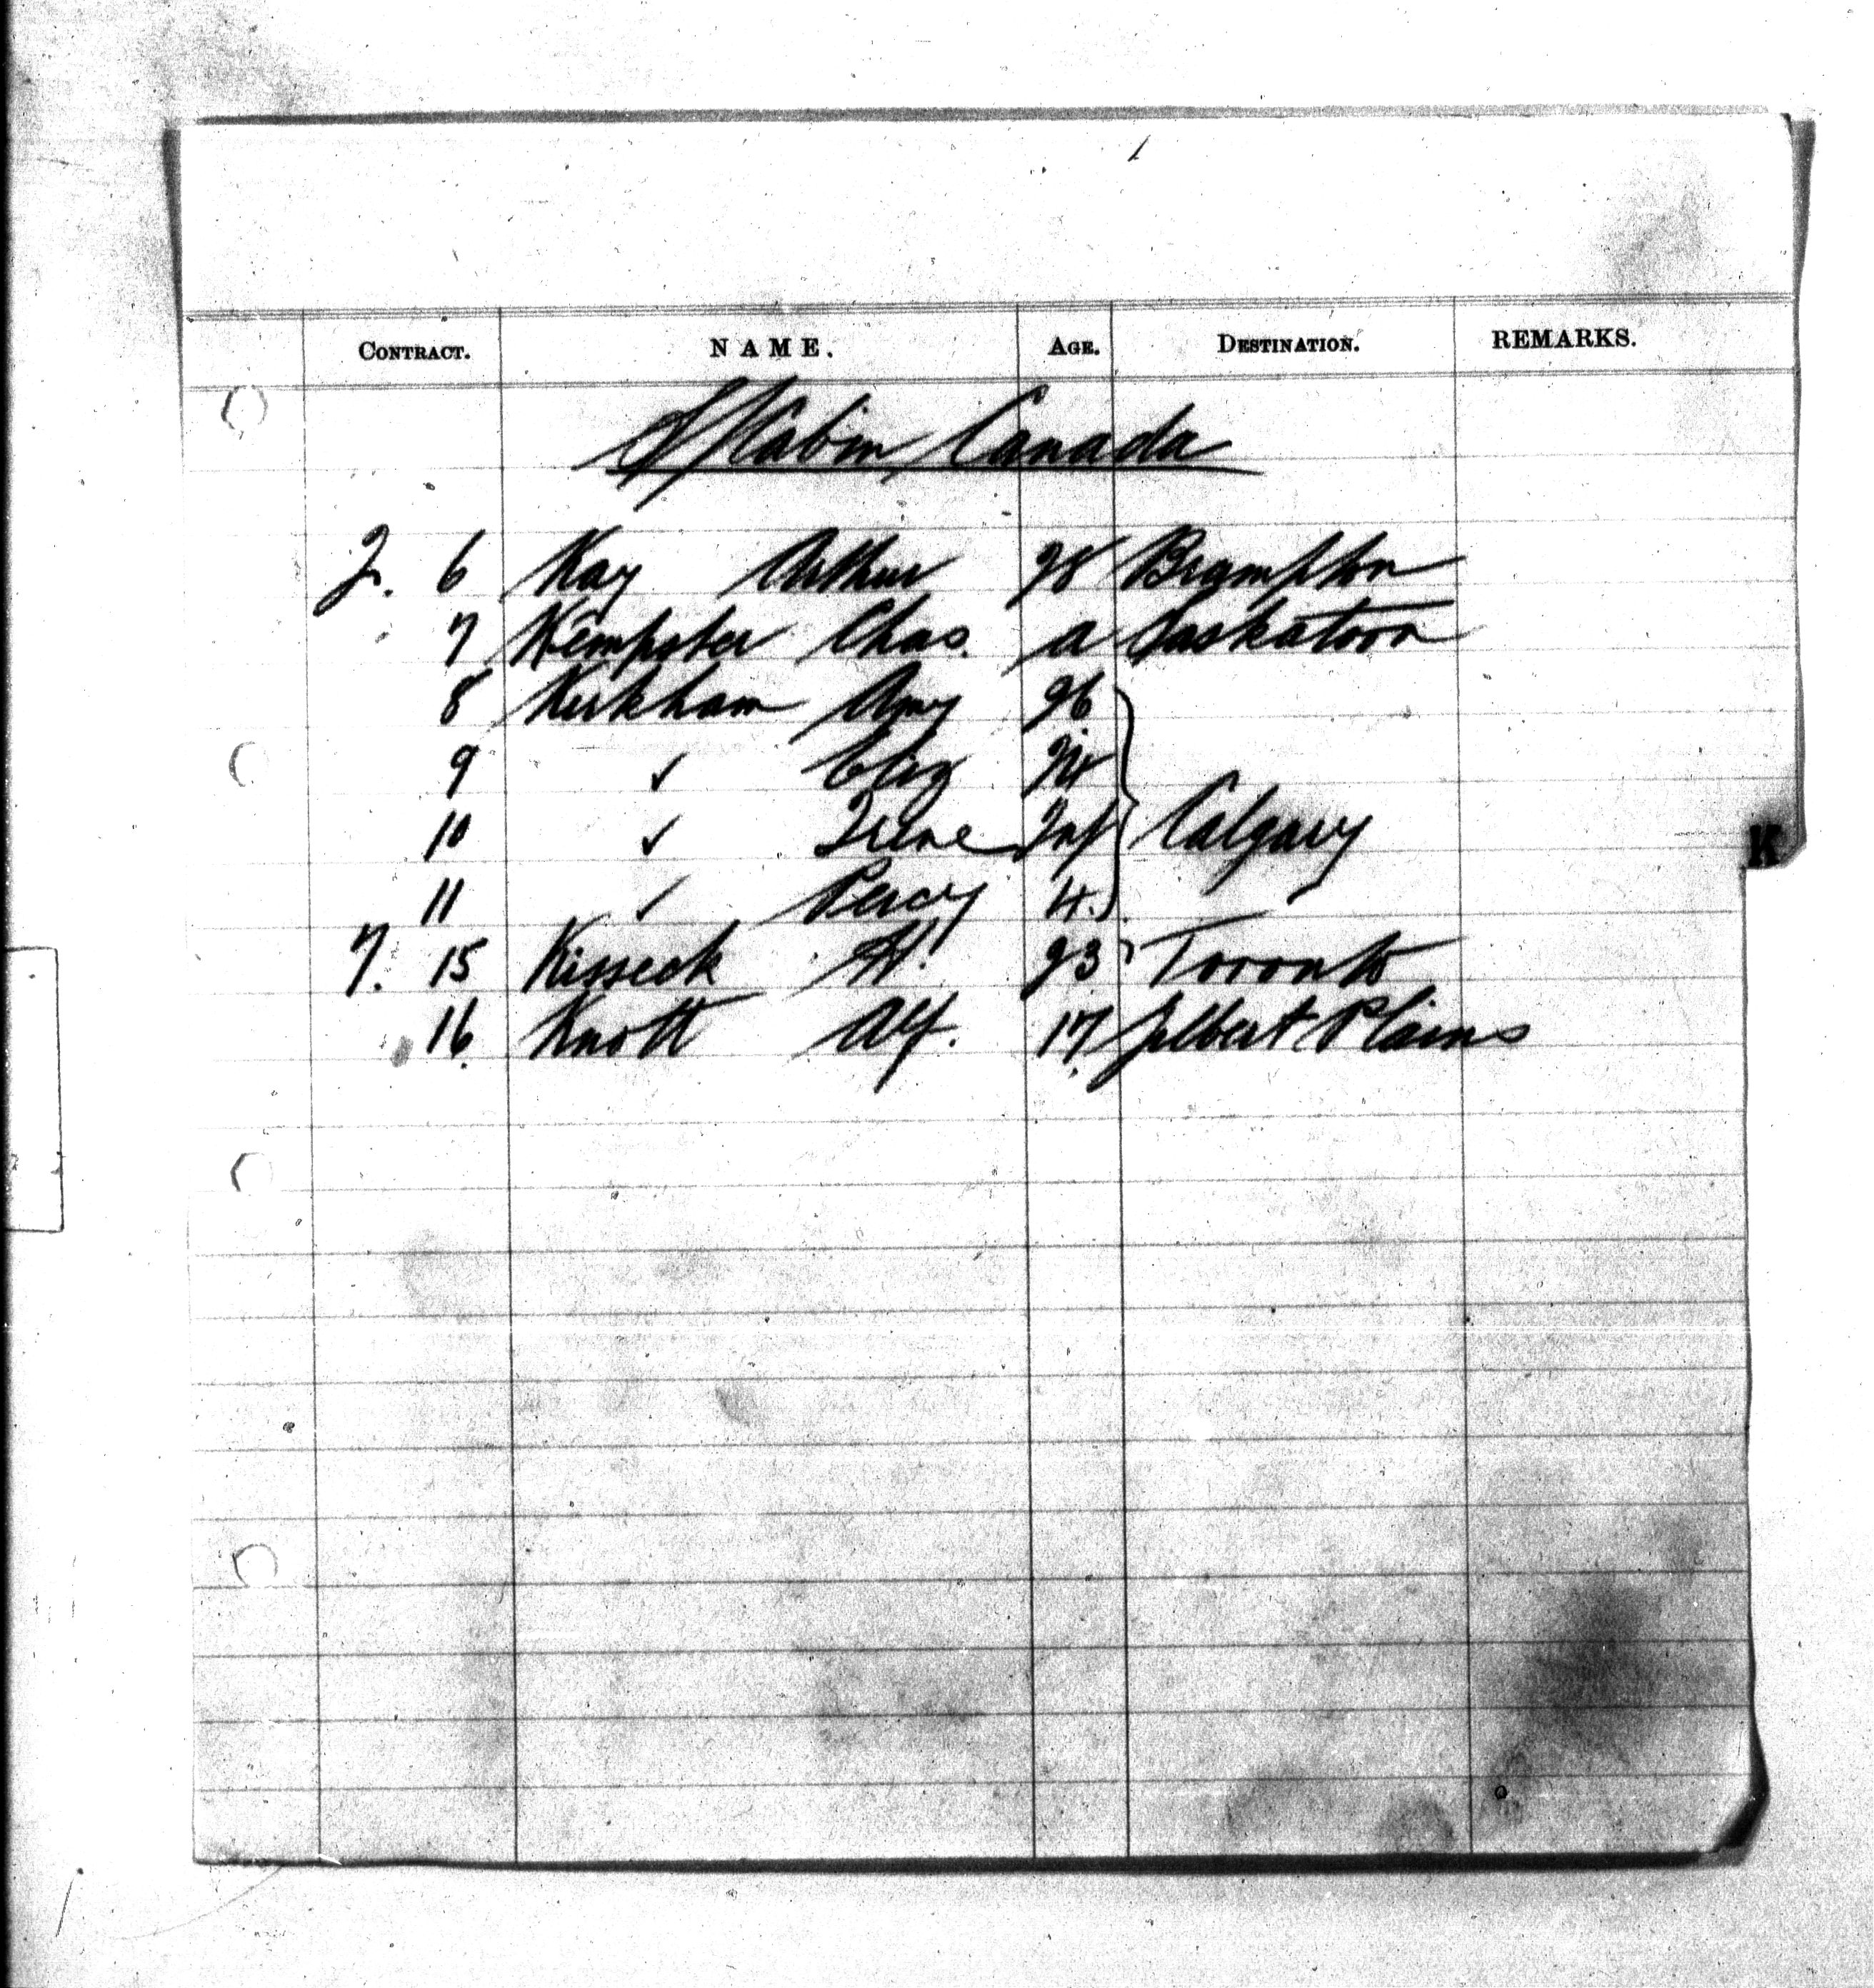 CONTRACT. NAME. AGE. DESTINATION. REMARKS.
Cabin, Canada
2. 6 Kay Arthur 28 Brampton
7 Kempster Chas. a Saskatoon
8 Kirkham Amy 26
9 ✓ Eliz
10 ✓ Irene Inf Calgary
K
11 ✓ Percy 4.
7. 15 Kisseck H. 23 Toronto
16 Knott Alf. 17 Jilbert Plains